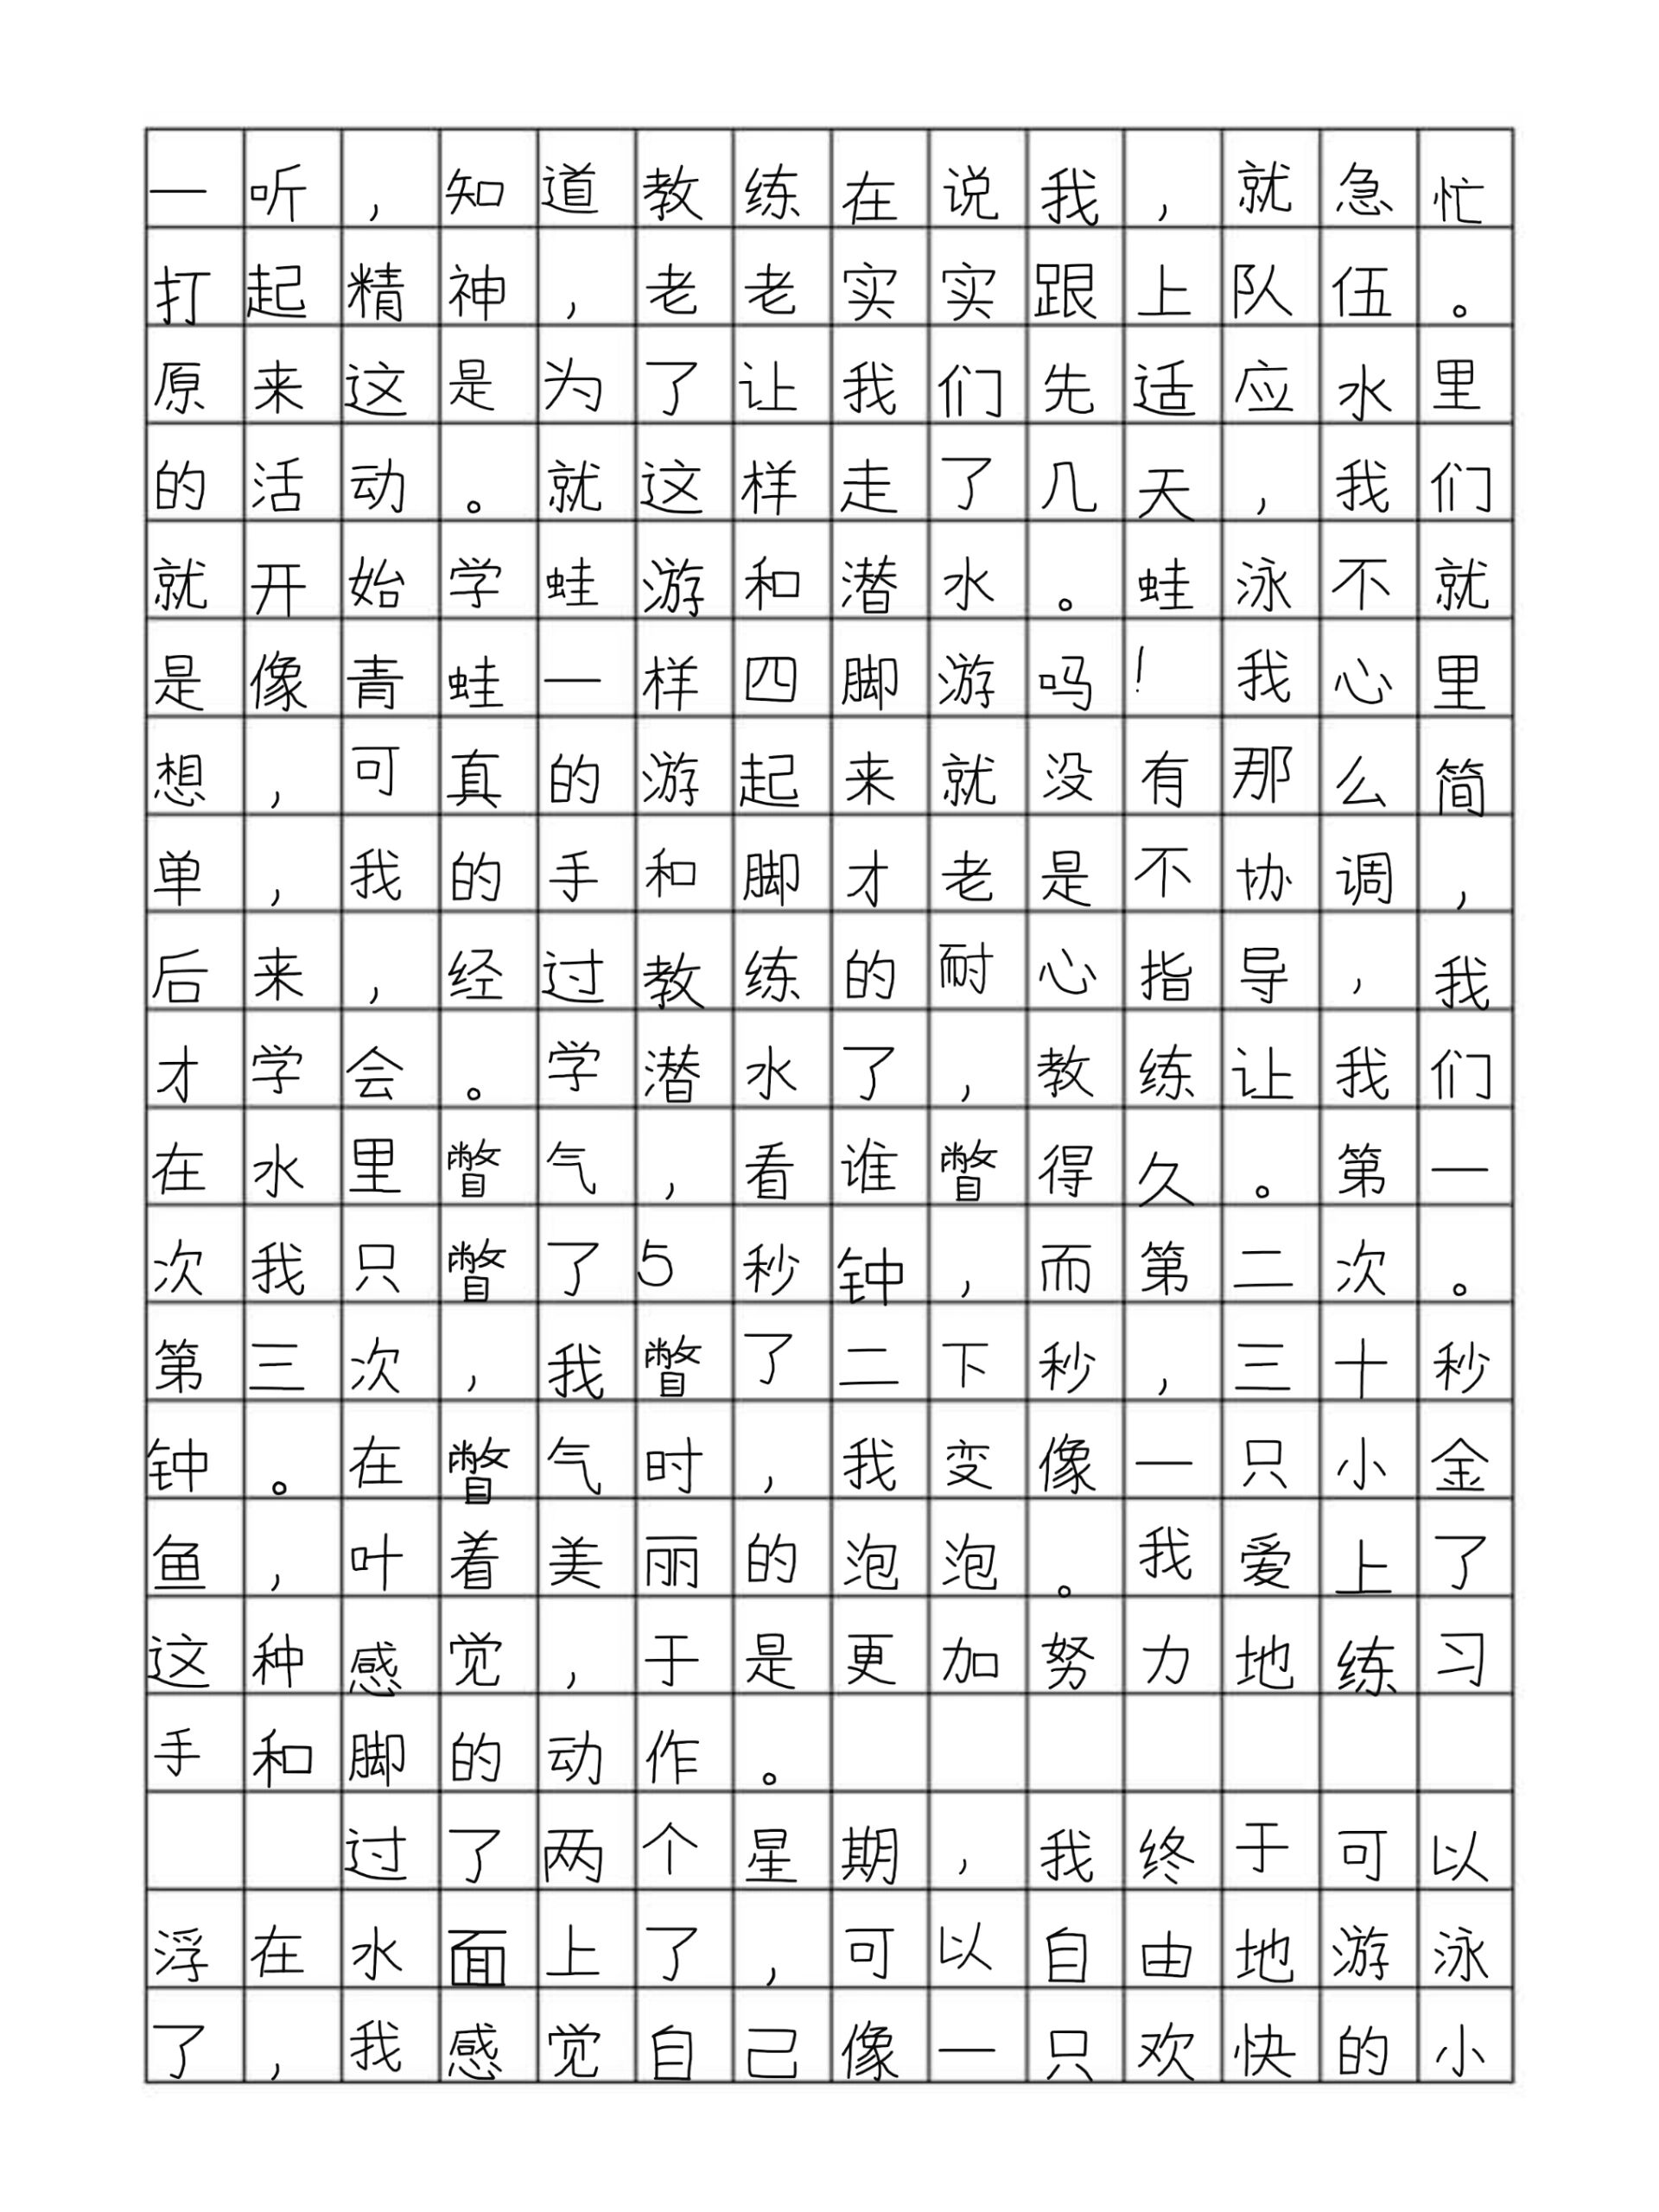 一听，知道教练在说我，就急忙
打起精神，老老实实跟上队伍。
原来这是为了让我们先适应水里
的活动。就这样走了几天，我们
就开始学蛙游和潜水。蛙泳不就
是像青蛙一样四脚游吗！我心里
想，可真的游起来就没有那么简
单，我的手和脚才老是不协调，
后来，经过教练的耐心指导，我
才学会。学潜水了，教练让我们
在水里瞥气，看谁瞥得久。第一
次我只瞥了5秒钟，而第二次。
第三次，我瞥了二下秒，三十秒
钟。在瞥气时，我变像一只小金
鱼，叶着美丽的泡泡。我爱上了
这种感觉，于是更加努力地练习
手和脚的动作。
过了两个星期，我终于可以
浮在水面上了，可以自由地游泳
了，我感觉自己像一只欢快的小